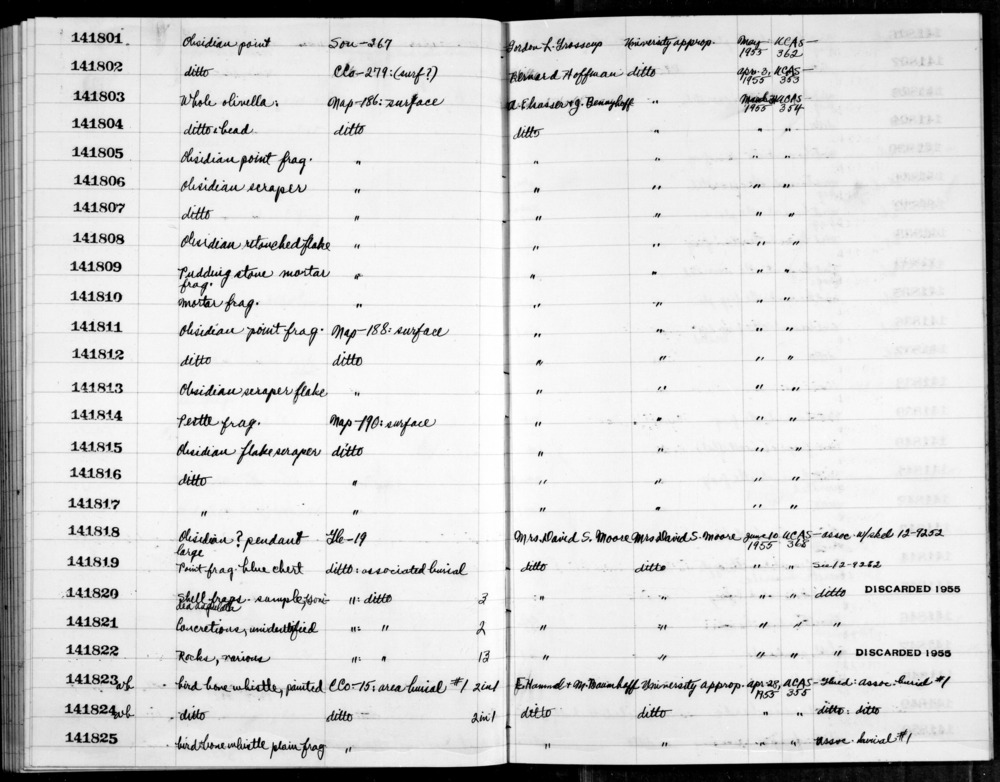 141801 Obsidian point Son-367 Gordon L. Grosscup University approp. May 1955 UCAS-362
141802 ditto CCo-279: (surf?) Bernard Hoffman ditto Apr. 3, 1955 UCAS-353
141803 Whole olivella: Nap-186: surface A. Elsasser & J. Bennyhoff " March 1955 UCAS-354
141804 ditto & bead ditto ditto " " "
141805 Obsidian point frag. " " " " "
141806 Obsidian scraper " " " " "
141807 ditto " " " " "
141808 Obsidian retouched flake " " " " "
141809 Pudding stone mortar frag. " " " " "
141810 Mortar frag. " " " " "
141811 Obsidian point frag. Nap-188: surface " " " "
141812 ditto ditto " " " "
141813 Obsidian scraper flake " " " " "
141814 Pestle frag. Nap-190: surface " " " "
141815 Obsidian flake scraper ditto " " " "
141816 ditto " " " " "
141817 " " " " " "
141818 Obsidian? pendant large Te-19 Mrs. David S. Moore Mrs. David S. Moore June 10 1955 UCAS 368 -assoc. w/skel 12-9252
141819 Point frag. blue chert ditto: associated burial ditto ditto " " See 12-9252
141820 Shell frags. sample, ": ditto 3 " " " " ditto DISCARDED 1955
141821 Concretions, unidentified ": " 2 " " " " "
141822 Rocks, various ": " 13 " " " " " DISCARDED 1955
141823 wb bird bone whistle, painted CCo-15: area burial #1 2 in 1 E. Hammel & M. Baumhoff University approp. Apr. 28, 1955 UCAS 355 - assoc. burial #1
141824 wb ditto ditto 2 in 1 ditto ditto " " ditto: ditto
141825 bird bone whistle plain frag " " " " " assoc. burial #1